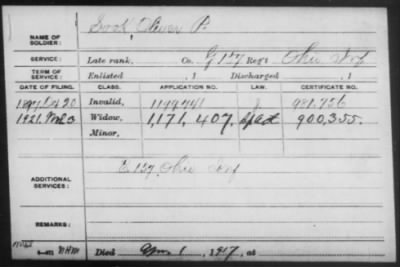 NAME OF SOLDIER: Oliver P.
SERVICE: Late rank, Co. G 157 Reg't Ohio Inf
TERM OF SERVICE: Enlisted , 1 Discharged , 1
DATE OF FILING. CLASS. APPLICATION NO. LAW. CERTIFICATE NO.
1897 20 Invalid, 1199741 J. 981,756
1921 3 Widow, 1,171,407. 900,355.
Minor,
ADDITIONAL SERVICES: 157 Ohio Inf
REMARKS:
Died 1, 1917, at